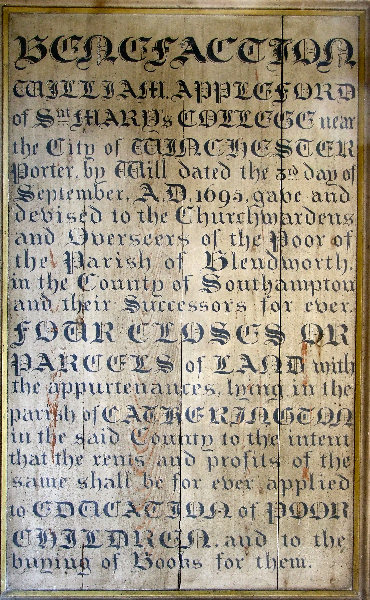 BENEFACTION
WILLIAM APPLEFORD
of Snt MARYs COLLEGE near
the City of WINCHESTER
Porter, by Will dated the 3rd day of
September, A.D. 1695, gave and
devised to the Churchwardens
and Overseers of the Poor of
the Parish of Blendworth,
in the County of Southampton
and their Successors for ever,
FOUR CLOSES OR
PARCELS of LAND with
the appurtenances, lying in the
parish of CATHERINGTON
in the said County to the intent
that the rents and profits of the
same shall be for ever applied
to EDUCATION of POOR
CHILDREN, and to the
buying of Books for them.